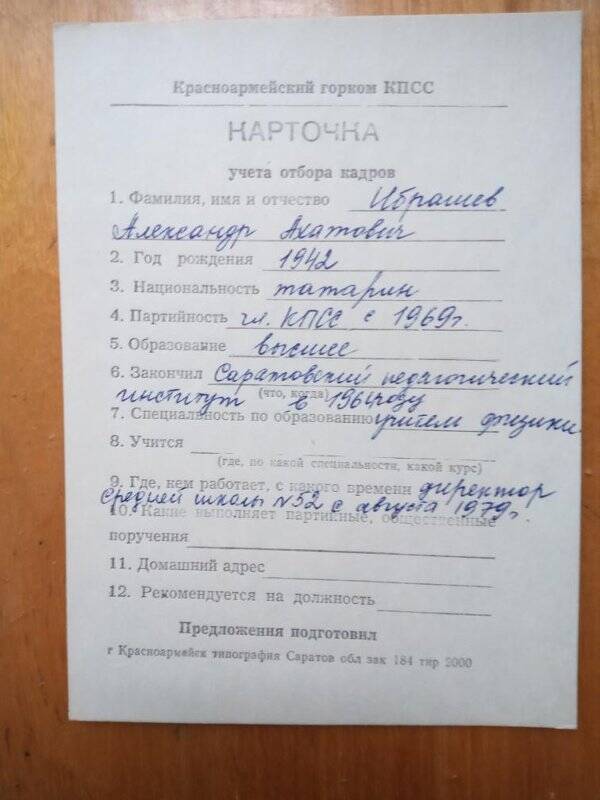 Красноармейский горком КПСС
КАРТОЧКА
учета отбора кадров
1. Фамилия, имя и отчество Ибрашев
Александр Ахатович
2. Год рождения 1942
3. Национальность татарин
4. Партийность чл. КПСС с 1969г.
5. Образование высшее
6. Закончил Саратовский педагогический
(что, когда)
институт в 1964году
7. Специальность по образованию учитель физики
8. Учится
(где, по какой специальности, какой курс)
9. Где, кем работает, с какого времени директор
средней школы №52 с августа 1979г.
10. Какие выполняет партийные, общественные
поручения
11. Домашний адрес
12. Рекомендуется на должность
Предложения подготовил
г Красноармейск типография Саратов обл зак 184 тир 2000